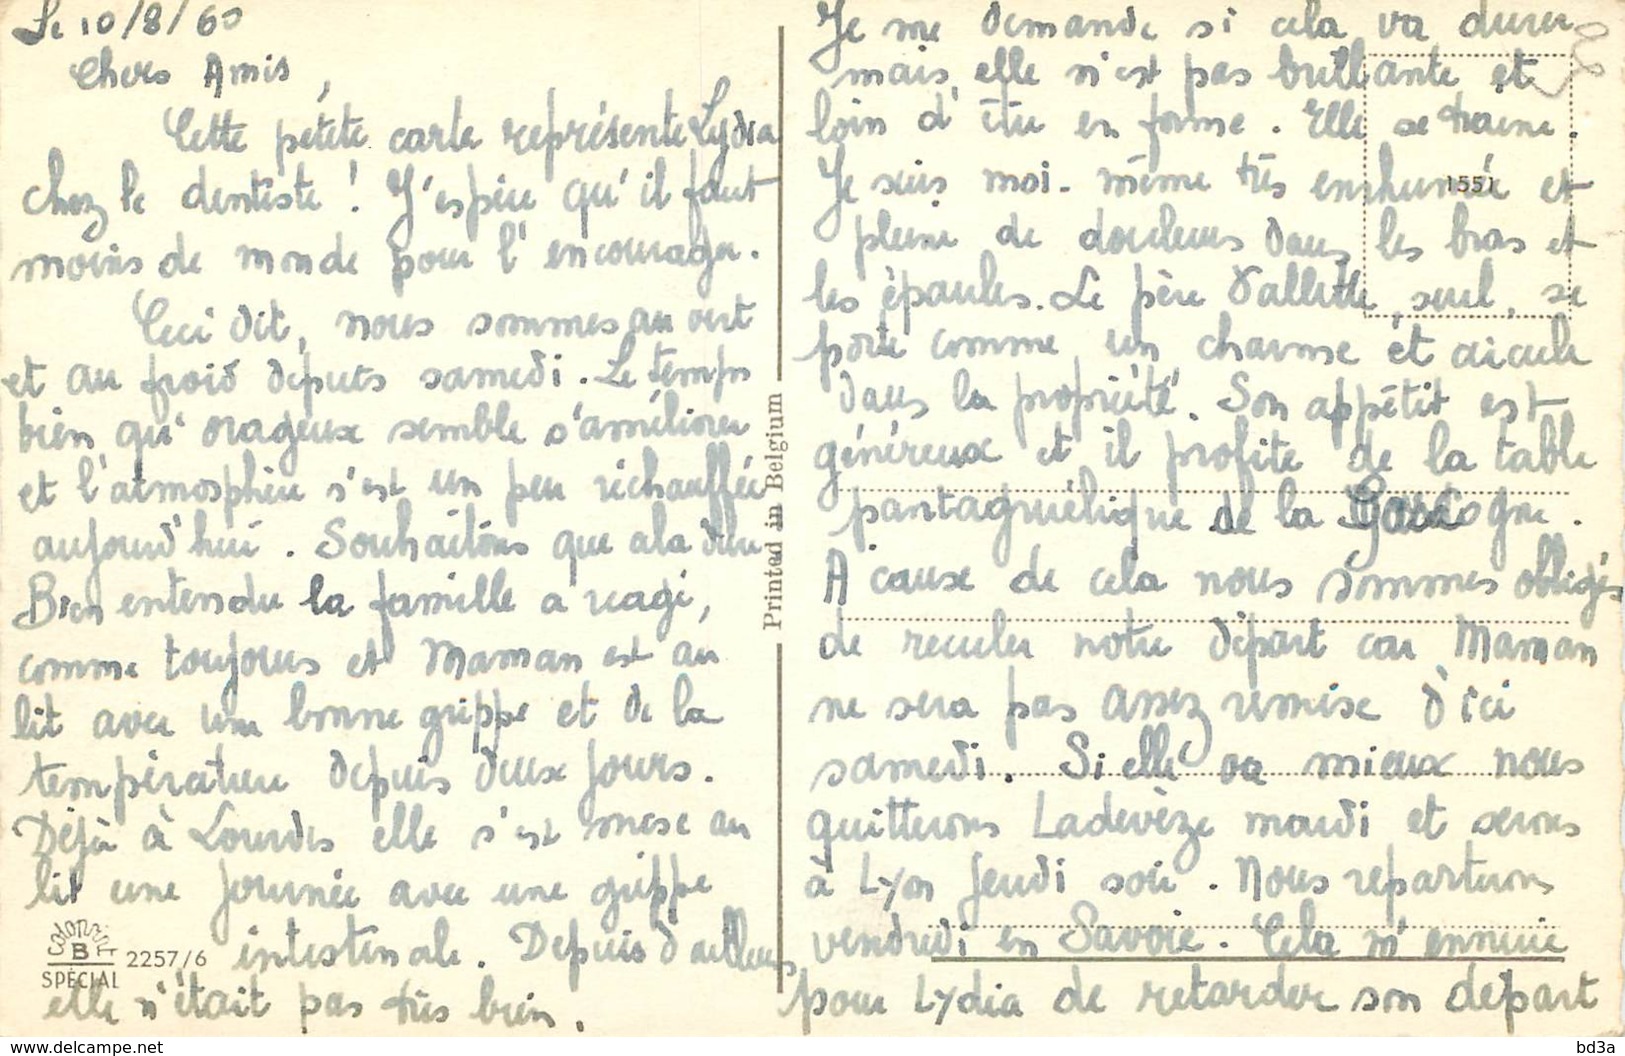 Le 10/8/60
Chers Amis,
Cette petite carte représente Lydia
chez le dentiste ! J'espère qu'il faut
moins de monde pour l'encourager.
Ceci dit, nous sommes au vert
et au froid depuis samedi. Le temps
bien qu'orageux semble s'améliorer
et l'atmosphère s'est un peu réchauffée
aujourd'hui. Souhaitons que cela dure
Bien entendu la famille a réagi,
comme toujours et Maman est au
lit avec une bonne grippe et de la
température depuis deux jours.
Déjà à Lourdes elle s'est mise au
lit une journée avec une grippe
intestinale. Depuis d'ailleurs
elle n'était pas très bien.
COLORPRINT
B
SPÉCIAL
2257/6
Printed in Belgium
Je me demande si cela va durer
mais elle n'est pas brillante et
loin d'être en forme. Elle se traene.
Je suis moi-même très enrhumée et
pleine de douleurs dans les bras et
les épaules. Le père Vallette, seul, se
porte comme un charme et circule
dans la propriété. Son appétit est
généreux et il profite de la table
pantagruélique de la Gascogne.
A cause de cela nous sommes obligés
de reculer notre départ car Maman
ne sera pas assez remise d'ici
samedi. Si elle va mieux nous
quitterons Ladevèze mardi et serons
à Lyon jeudi soir. Nous repartirons
vendredi en Savoie. Cela m'ennuie
pour Lydia de retarder son départ
1551
www.delcampe.net
bd3a